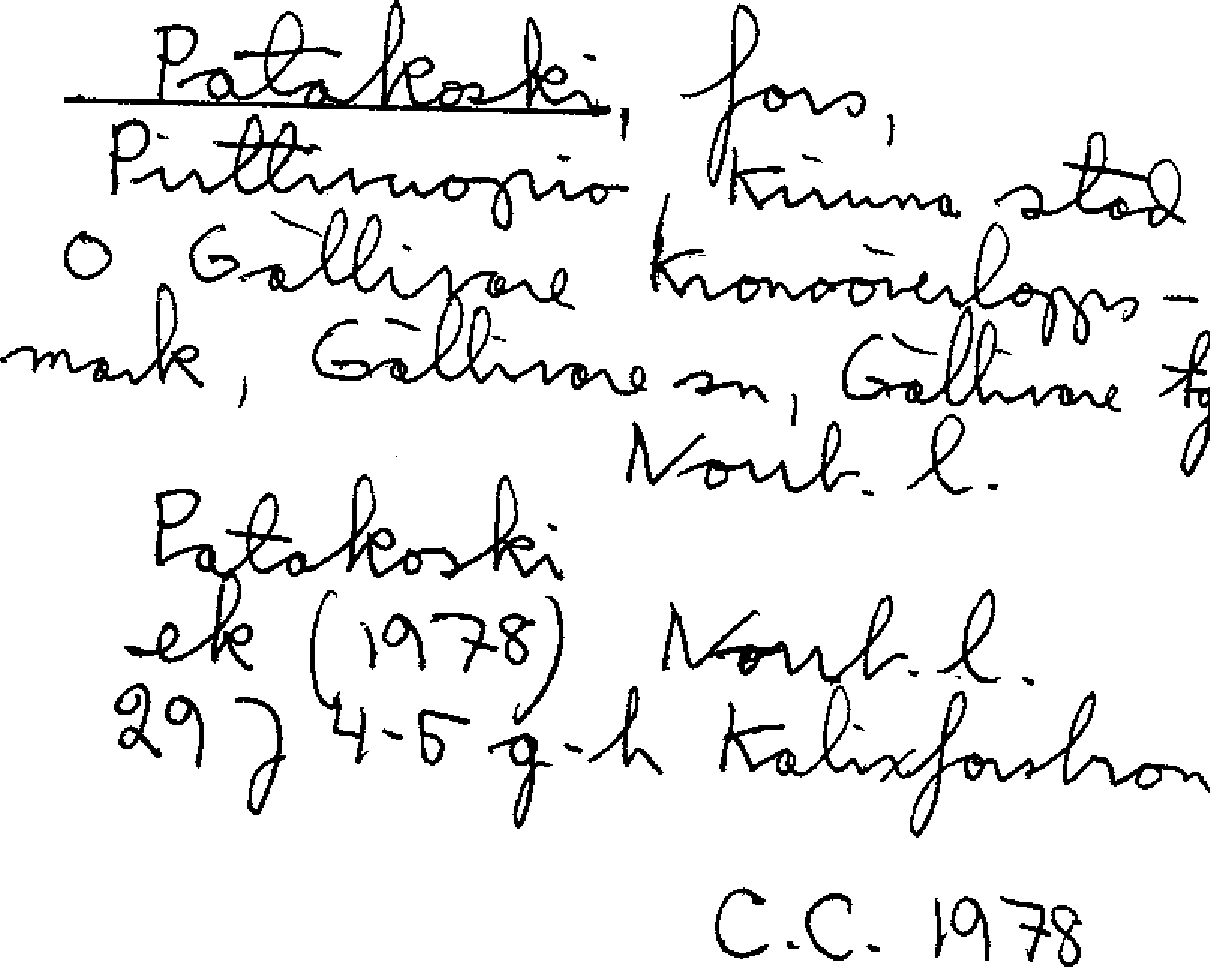 Patakoski, fors,
Pirttivuopio, Kiruna stad
o Gällivare Kronoöverlopps-
mark, Gällivare sn, Gällivare tg
Norrb. l.
Patakoski
ek (1978) Norrb. l.
29 J 4-5 g-h Kalixforsbron
C.C. 1978